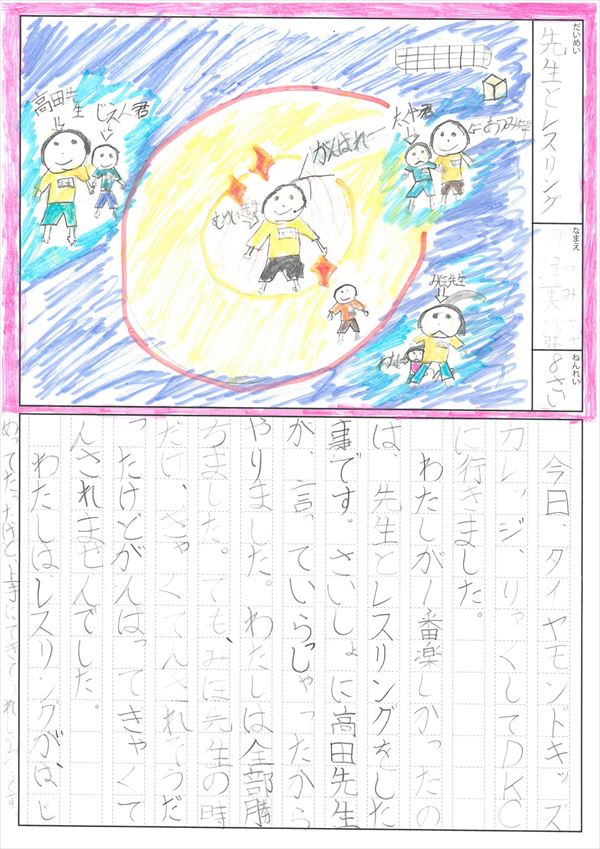 だいめい
先生とレスリング
なまえ
ねんれい
8さい
高田先生
じん人君
がんばれー
むらい先生
たく君
よあつみ先生
みほ先生
わたし
今日、ダイヤモンドキッズ
カレッジ、りゃくしてDKC
に行きました。
わたしが1番楽しかったの
は、先生とレスリングをした
事です。さいしょに高田先生
が、言っていらっしゃったから
やりました。わたしは全部勝
ちました。でも、みほ先生の時
だけ、ぎゃくてんされそうだ
ったけどがんばってぎゃくて
んされませんでした。
わたしはレスリングがはじ
めてだったけど、上手にできてうれしかったです。